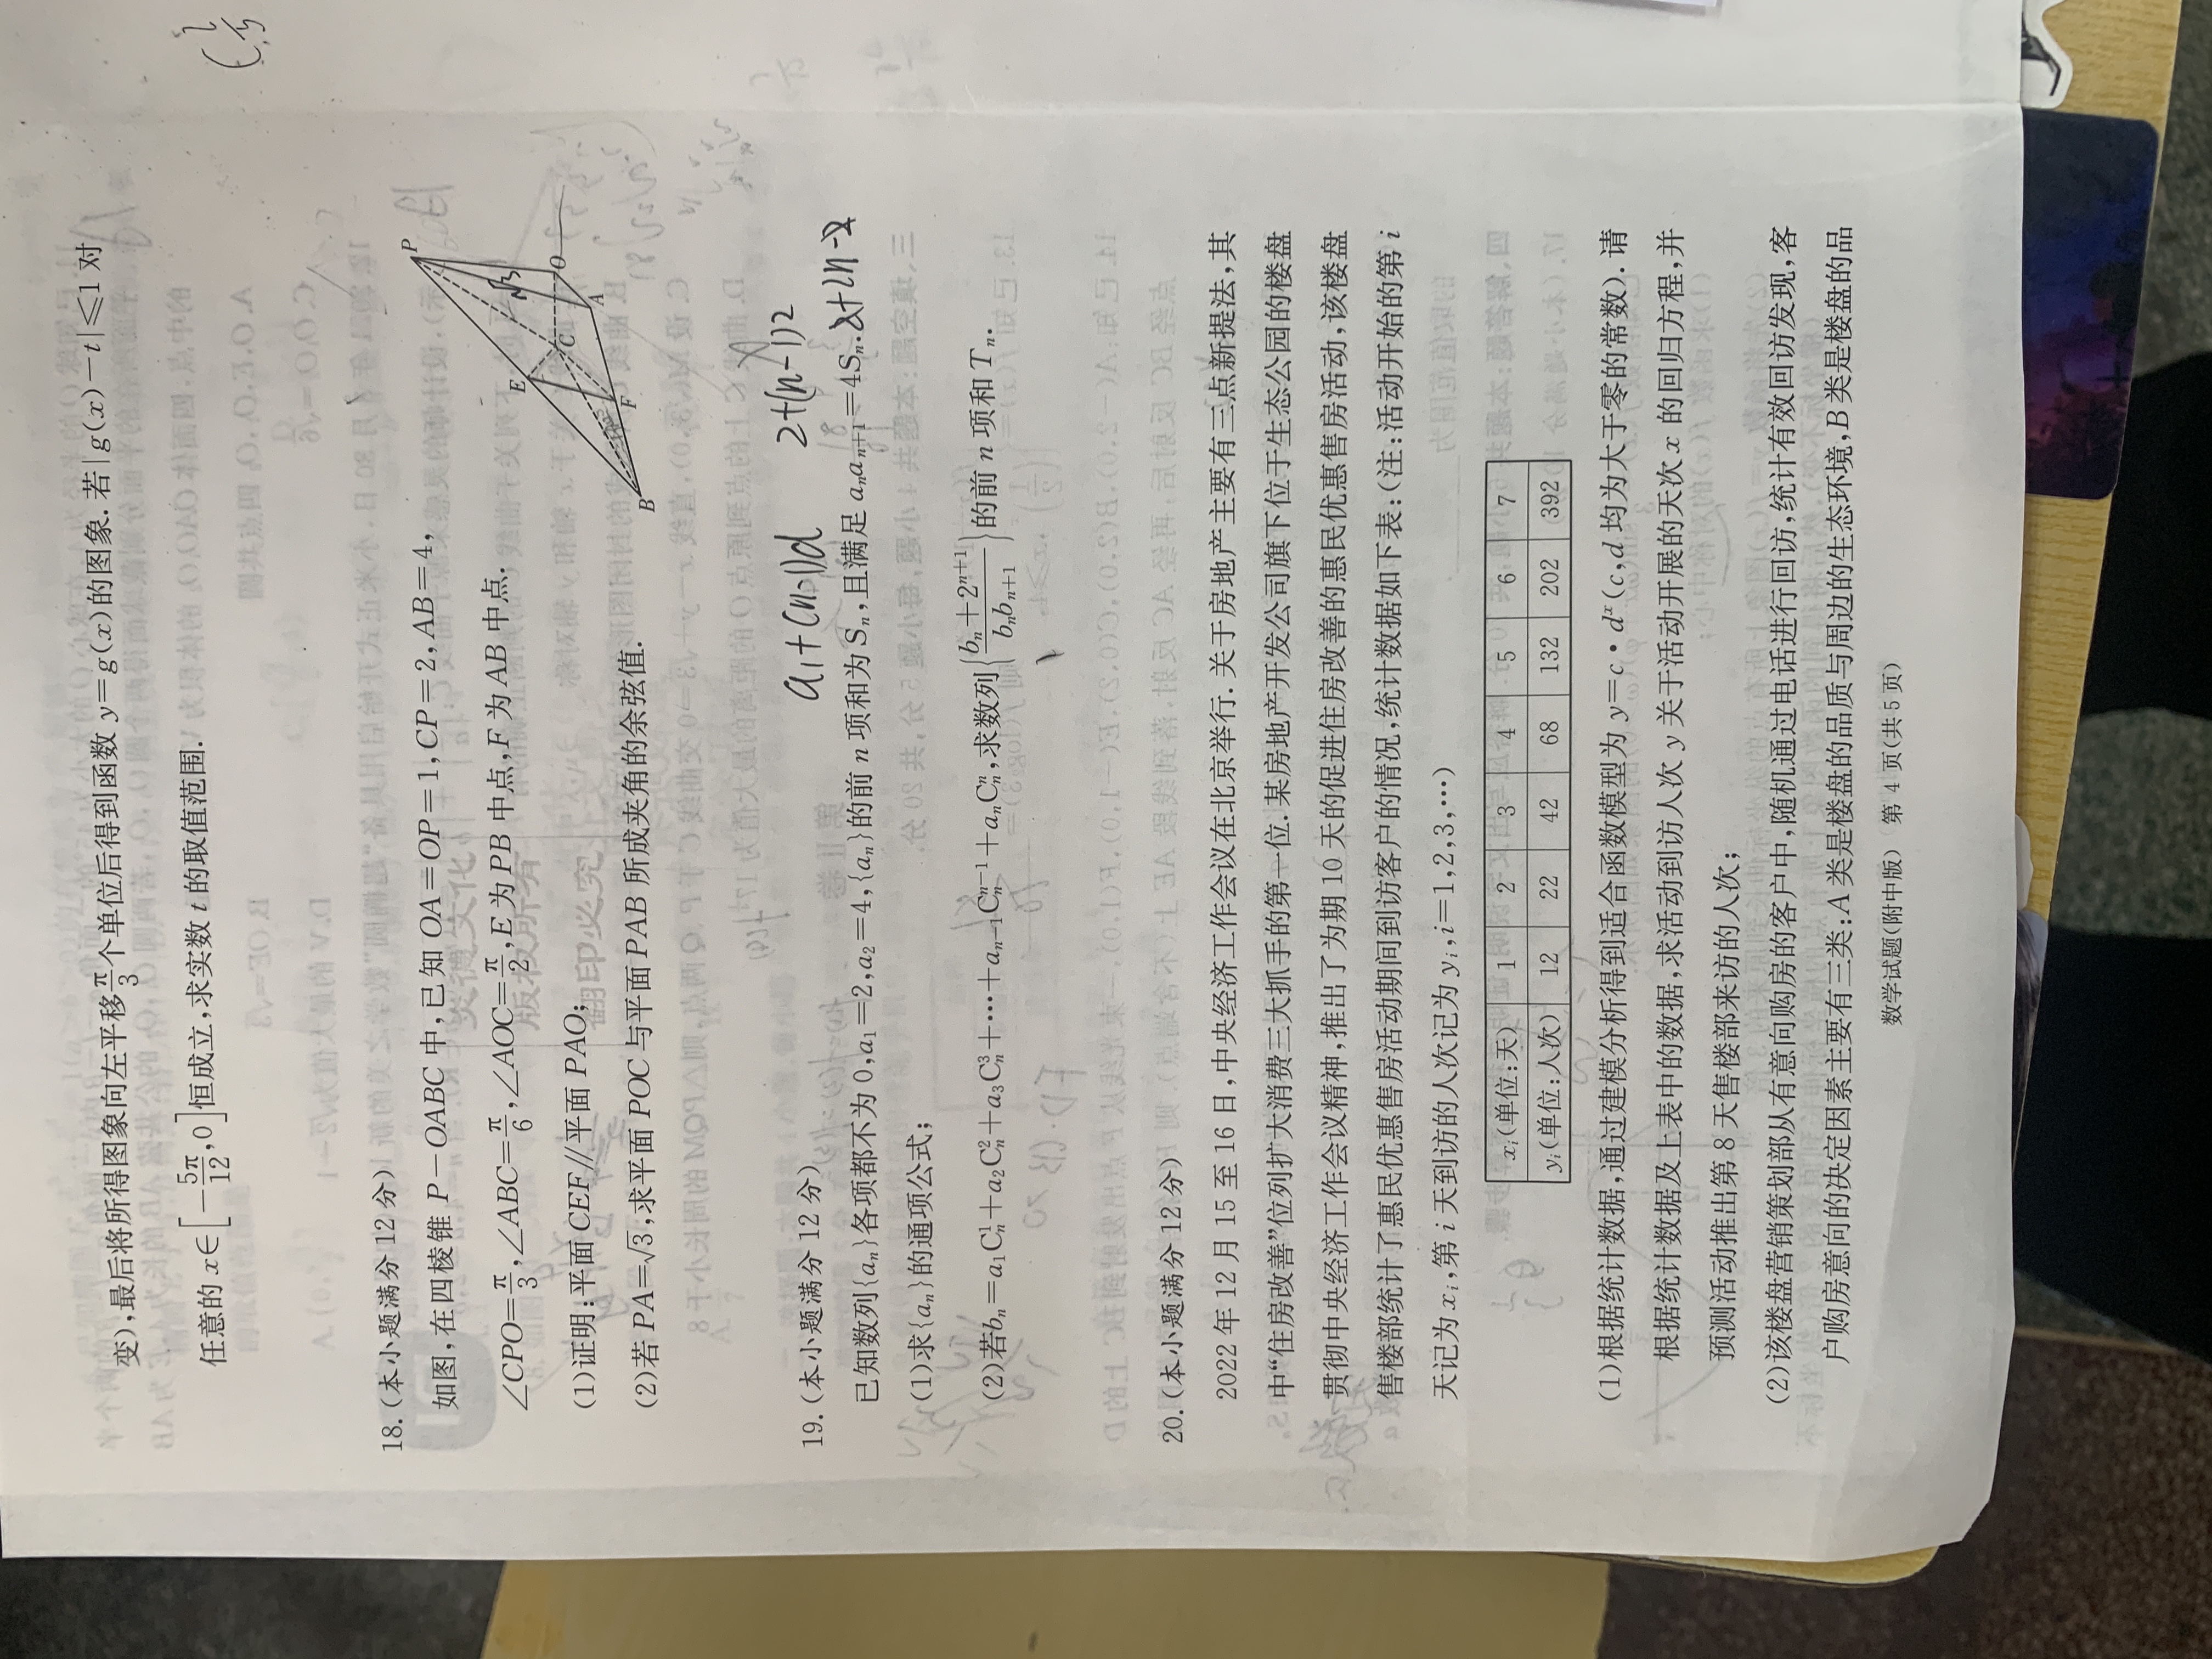 变),最后将所得图象向左平移π/3个单位后得到函数 y=g(x)的图象.若|g(x)-t|⩽1 对
任意的 x∈[-5π/12,0]恒成立,求实数 t 的取值范围.
18.(本小题满分 12 分)
如图,在四棱锥 P-OABC 中,已知 OA=OP=1,CP=2,AB=4,
∠CPO=π/3,∠ABC=π/6,∠AOC=π/2,E 为 PB 中点,F 为 AB 中点.
(1)证明:平面 CEF//平面 PAO;
(2)若 PA=√3,求平面 POC 与平面 PAB 所成夹角的余弦值.
P
E
O
C
A
F
B
a₁+(n-1)d
2+(n-1)2
19.(本小题满分 12 分)
已知数列{aₙ}各项都不为 0,a₁=2,a₂=4,{aₙ}的前 n 项和为 Sₙ,且满足 aₙaₙ₊₁=4Sₙ.
2+2n-2
(1)求{aₙ}的通项公式;
(2)若bₙ=a₁Cₙ¹+a₂Cₙ²+a₃Cₙ³+⋯+aₙ₋₁Cₙⁿ⁻¹+aₙCₙⁿ,求数列{(bₙ+2ⁿ⁺¹)/(bₙbₙ₊₁)}的前 n 项和 Tₙ.
20.(本小题满分 12 分)
2022 年 12 月 15 至 16 日,中央经济工作会议在北京举行.关于房地产主要有三点新提法,其
中“住房改善”位列扩大消费三大抓手的第一位.某房地产开发公司旗下位于生态公园的楼盘
贯彻中央经济工作会议精神,推出了为期 10 天的促进住房改善的惠民优惠售房活动,该楼盘
售楼部统计了惠民优惠售房活动期间到访客户的情况,统计数据如下表:(注:活动开始的第 i
天记为 xᵢ,第 i 天到访的人次记为 yᵢ,i=1,2,3,⋯)
xᵢ(单位:天) 1 2 3 4 5 6 7
yᵢ(单位:人次) 12 22 42 68 132 202 392
(1)根据统计数据,通过建模分析得到适合函数模型为 y=c·dˣ(c,d 均为大于零的常数).请
根据统计数据及上表中的数据,求活动到访人次 y 关于活动开展的天次 x 的回归方程,并
预测活动推出第 8 天售楼部来访的人次;
(2)该楼盘营销策划部从有意向购房的客户中,随机通过电话进行回访,统计有效回访发现,客
户购房意向的决定因素主要有三类:A 类是楼盘的品质与周边的生态环境,B 类是楼盘的品
数学试题(附中版) 第 4 页(共 5 页)